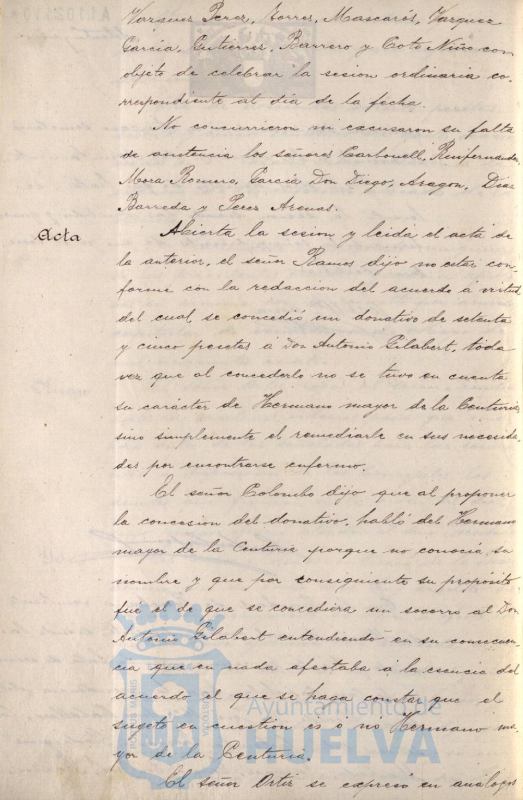 Vazquez Perez, Torres, Mascarós, Vazquez
García, Gutierrez, Barrero y Coto Niño con
objeto de celebrar la sesion ordinaria co-
rrespondiente al dia de la fecha.
No concurrieron ni excusaron su falta
de asistencia los señores Carbonell, Ruifernandez,
Mora Romero, García Don Diego, Aragon, Diaz
Barreda y Perez Arenas.
Acta
Abierta la sesion y leida el acta de
la anterior, el señor Ramos dijo no estar con-
forme con la redaccion del acuerdo á virtud
del cual, se concedió un donativo de setenta
y cinco pesetas á Don Antonio Gilabert, toda
vez que al concederlo no se tuvo en cuenta
su carácter de Hermano mayor de la Centuria
sino simplemente el remediarle en sus necesida-
des por encontrarse enfermo.
El señor Colombo dijo que al proponer
la concesion del donativo, habló del Hermano
mayor de la Centuria porque no conocia su
nombre y que por consiguiente su propósito
fué el de que se concediera un socorro al Don
Antonio Gilabert entendiendo en su consecuen-
cia que en nada afectaba á la esencia del
acuerdo el que se haga constar que el
sugeto en cuestion es ó no Hermano ma-
yor de la Centuria.
El señor Ortiz se expresó en análogos
Ayuntamiento de
HUELVA